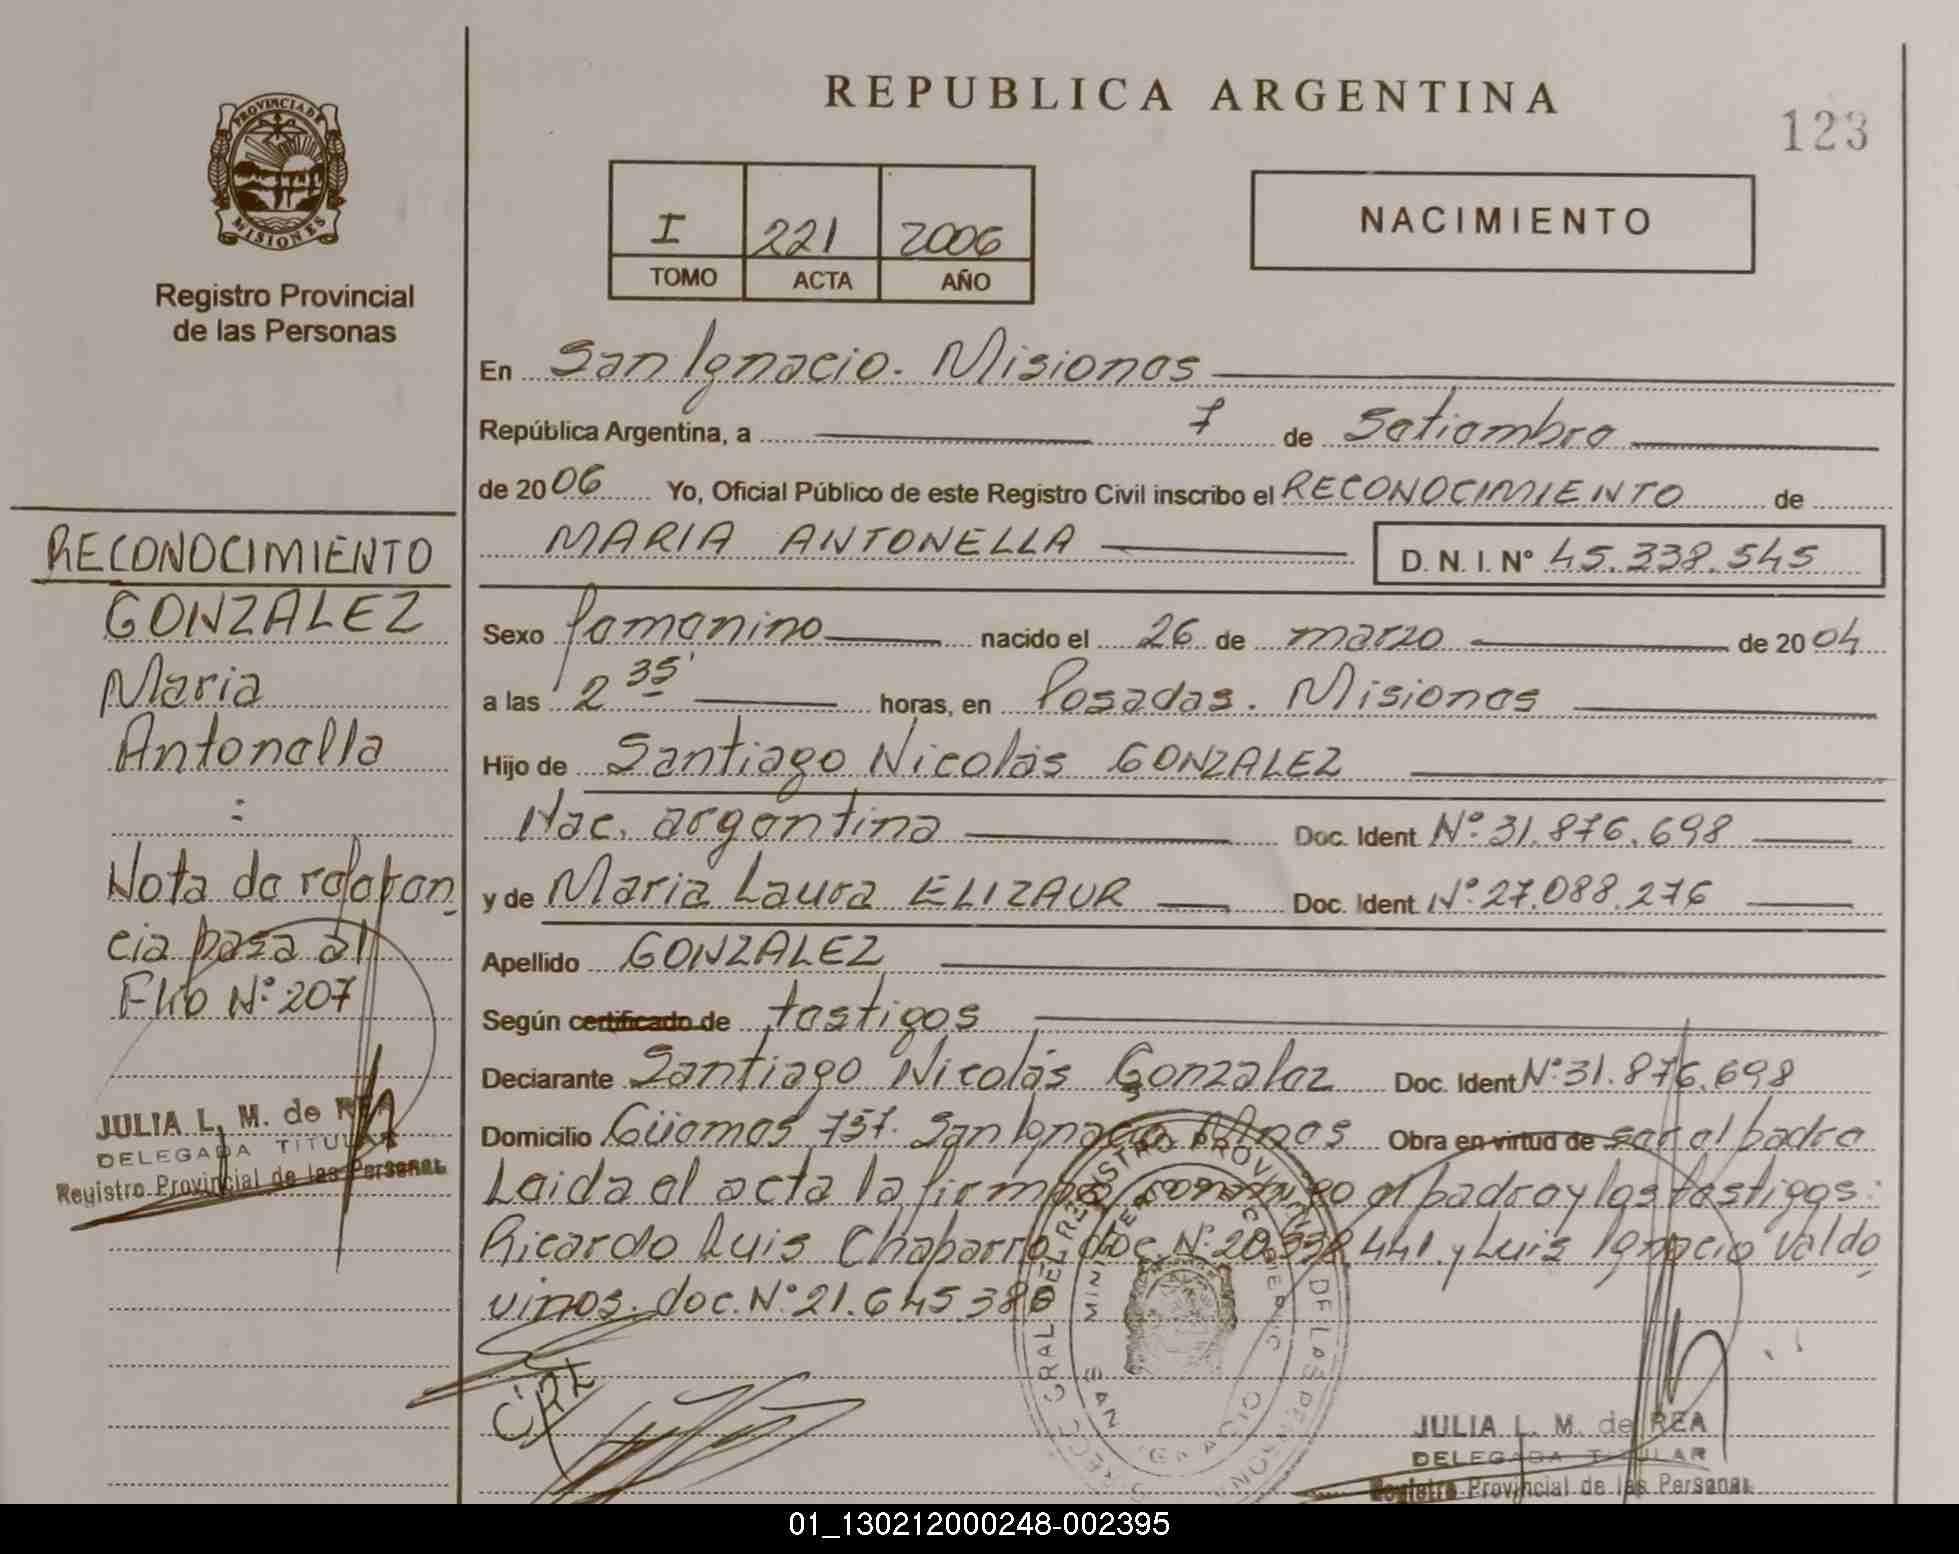 REPUBLICA ARGENTINA
123
PROVINCIA DE
MISIONES
Registro Provincial
de las Personas
I 221 2006
TOMO ACTA AÑO
NACIMIENTO
En San Ignacio. Misiones
República Argentina, a 7 de Setiembre
de 2006 Yo, Oficial Público de este Registro Civil inscribo el RECONOCIMIENTO de
MARIA ANTONELLA D. N. I. Nº 45.338.545
Sexo femenino nacido el 26 de marzo de 2004
a las 2 35' horas, en Posadas. Misiones
Hijo de Santiago Nicolás GONZALEZ
Nac. argentina Doc. Ident. Nº 31.876.698
y de Maria Laura ELIZAUR Doc. Ident. Nº 27.088.276
Apellido GONZALEZ
Según certificado de testigos
Declarante Santiago Nicolás Gonzalez Doc. Ident Nº 31.876.698
Domicilio Güemes 757. San Ignacio Mnes Obra en virtud de ser el padre
Leida el acta la firman conmigo el padre y los testigos:
Ricardo Luis Chaparro doc. Nº 20.338.441 y Luis Ignacio Valdo
vinos. doc. Nº 21.645.386
RECONOCIMIENTO
GONZALEZ
Maria
Antonella
:
Nota de referen
cia pasa al
Flio Nº 207
JULIA L. M. de REA
DELEGADA TITULAR
Registro Provincial de las Personas
JULIA L. M. de REA
DELEGADA TITULAR
Registro Provincial de las Personas
01_130212000248-002395